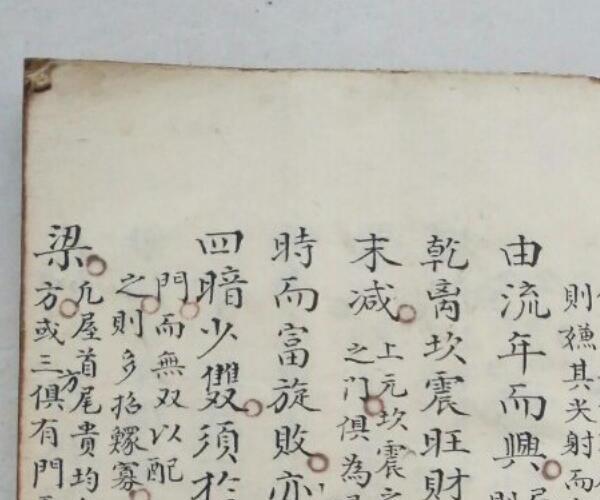 則獲其光射而
由流年而興
乾离坎震旺財
末减
上元坎震
之门俱為
時而富旋敗亦
四暗少雙須於
門而無双以配
之則多招鰥寡
梁
凢屋首尾貴均
方或三俱有門
方